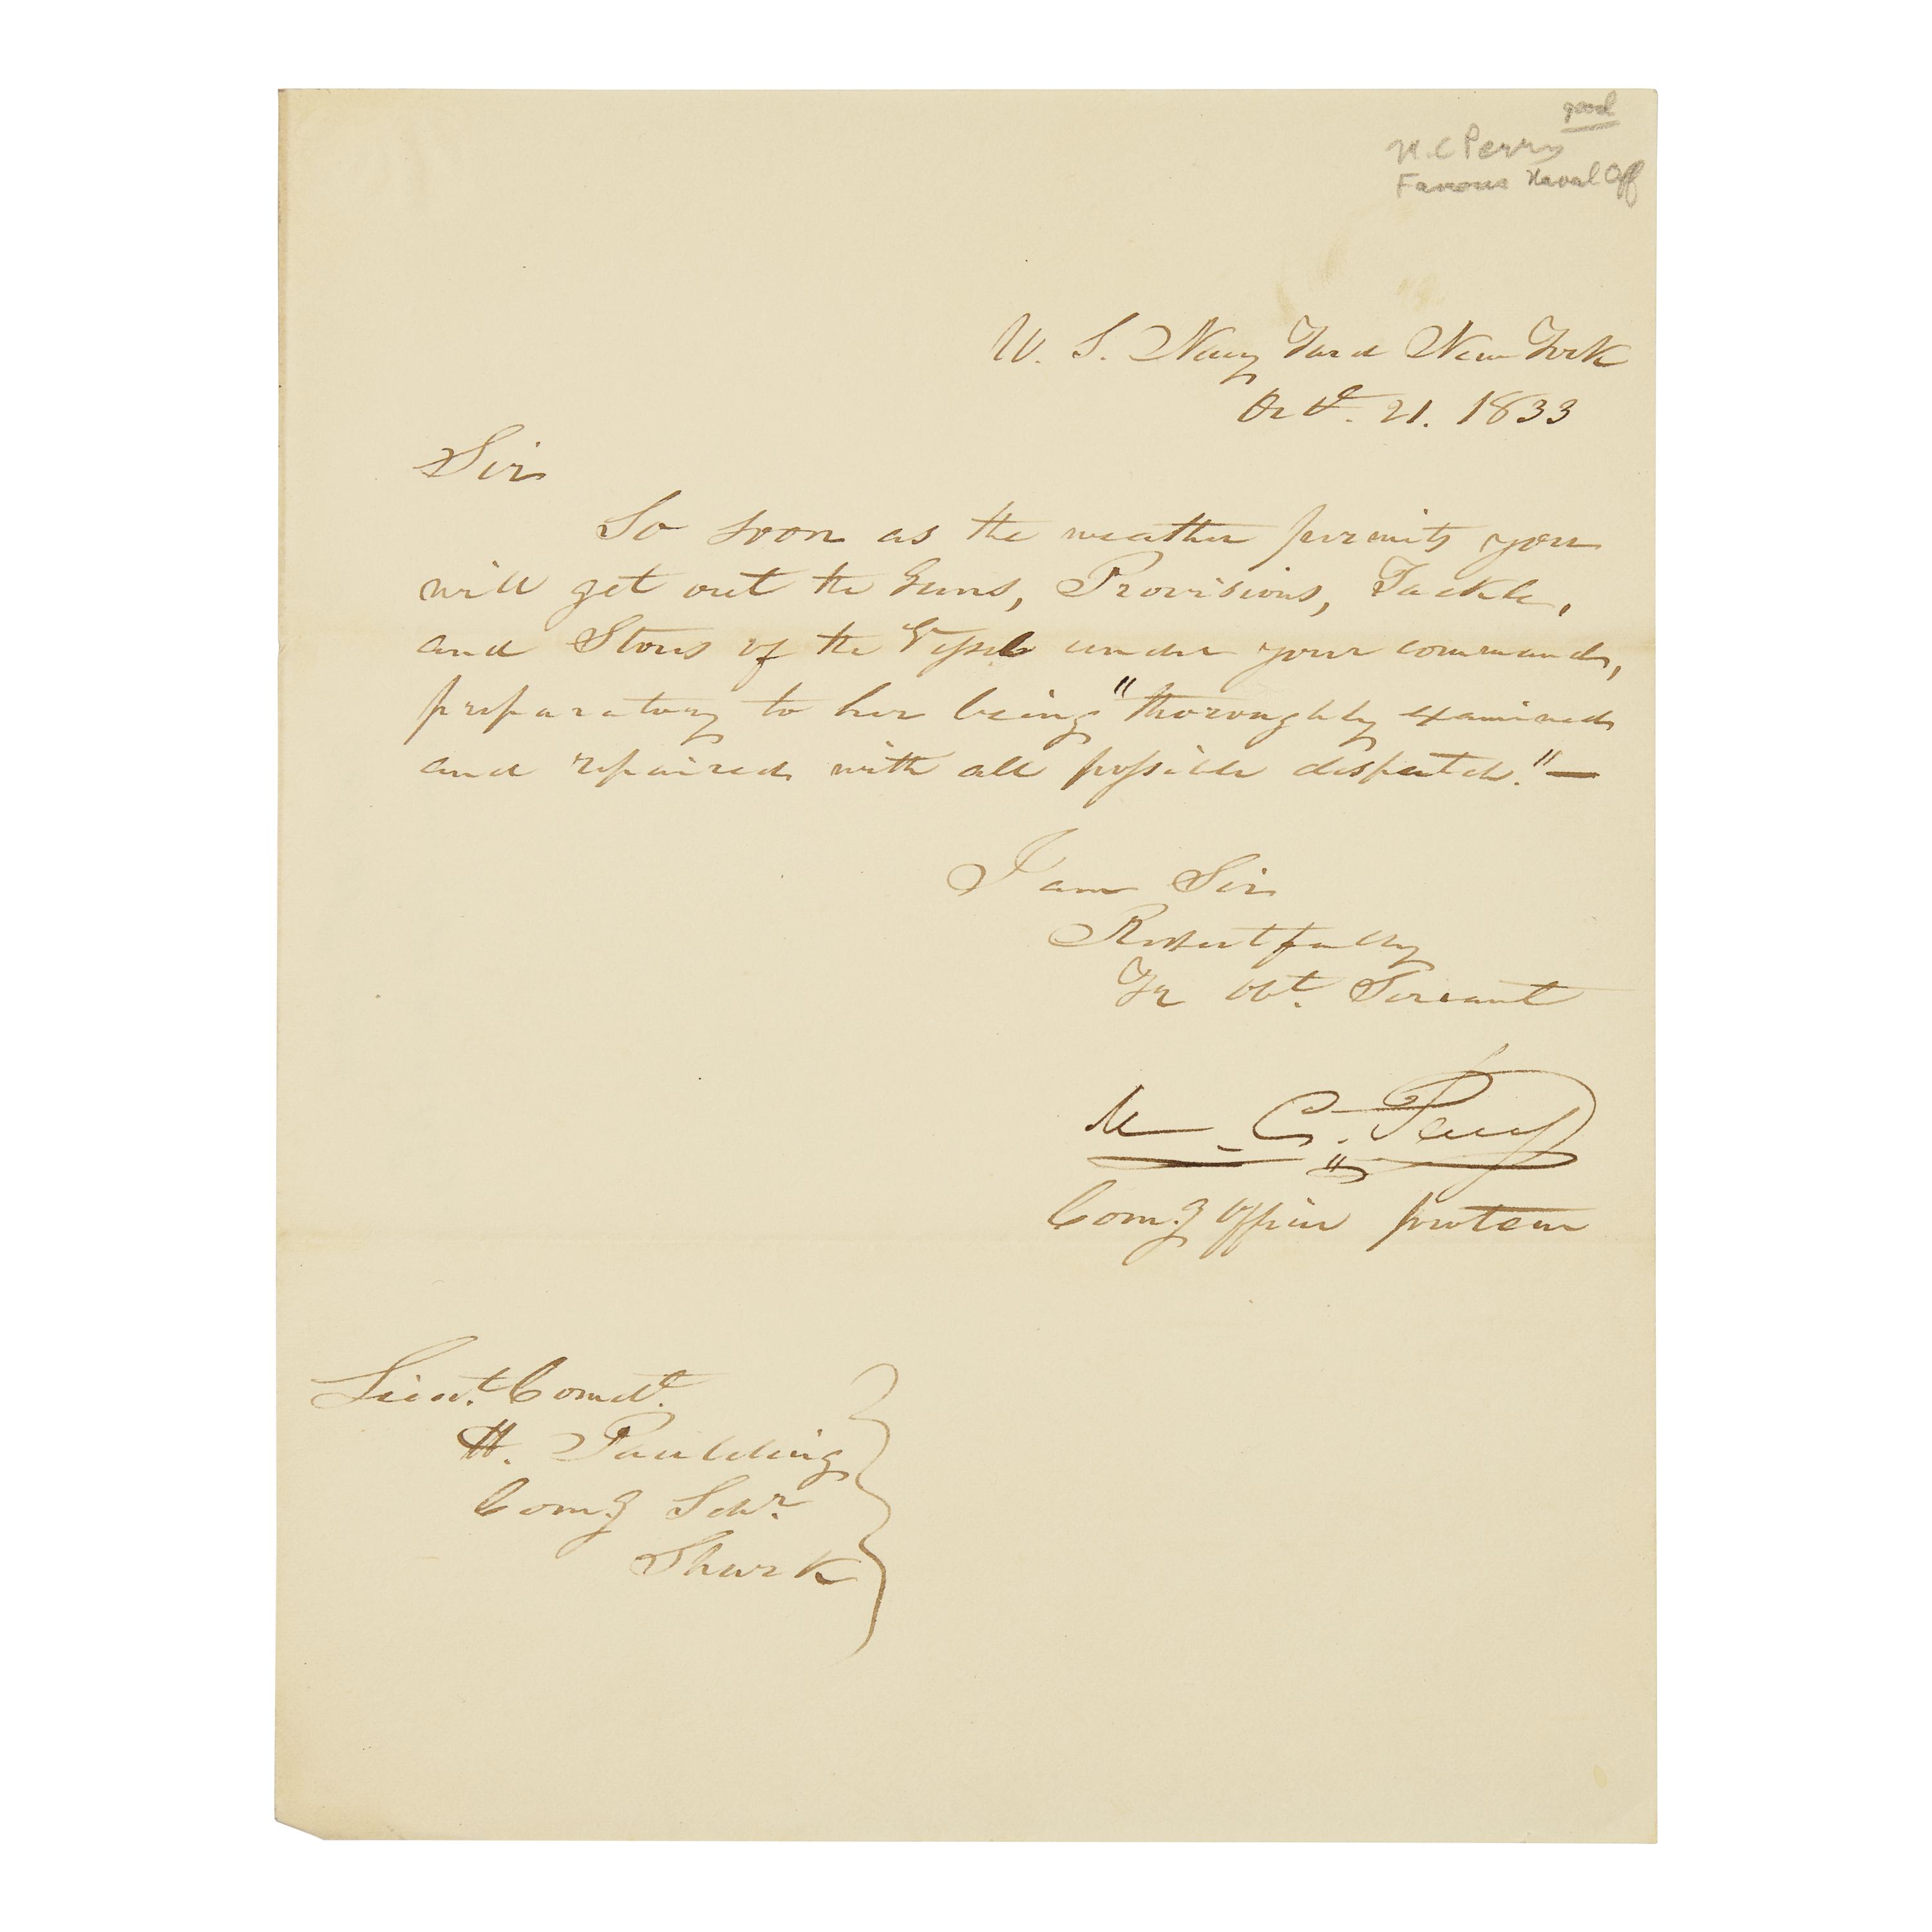 good
M. C Perry
Famous Naval Off
U. S. Navy Yard New York
Octr. 21. 1833
Sir
So soon as the weather permits you
will get out the Guns, Provisions, Tackle,
and Stores of the Vessel under your command,
preparatory to her being "thoroughly examined
and repaired with all possible despatch."—
I am Sir
Respectfully
Yr Obt. Servant
M. C. Perry
Comg Officer protem
Lieut. Comdt.
H. Paulding
Comg Schr.
Shark